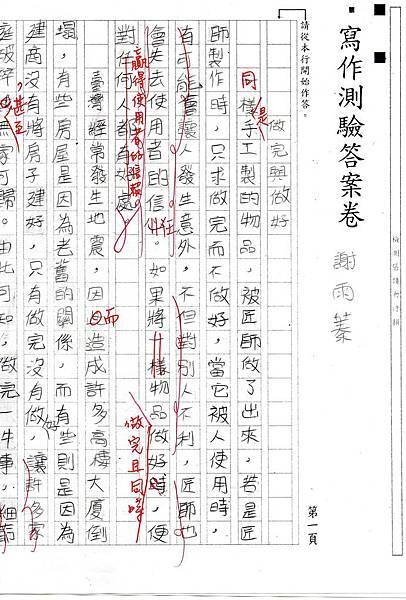 寫作測驗答案卷
謝雨蓁
請從本行開始作答。
第一頁
做完與做好
同樣是手工製的物品，被匠師做了出來，若是匠
師製作時，只求做完而不做好，當它被人使用時，
有可能會讓人發生意外，不但對別人不利，匠師也
會失去使用者的信任。如果將一樣物品做好時，便
做完且同時
對任何人都有好處。
贏得使用者的信賴。
臺灣經常發生地震，因而造成許多高樓大廈倒
塌，有些房屋是因為老舊的關係，而有些則是因為
建商沒有將房子建好，只有做完沒有做好，讓許多家
庭破碎，甚至無家可歸。由此可知，做完一件事，細節